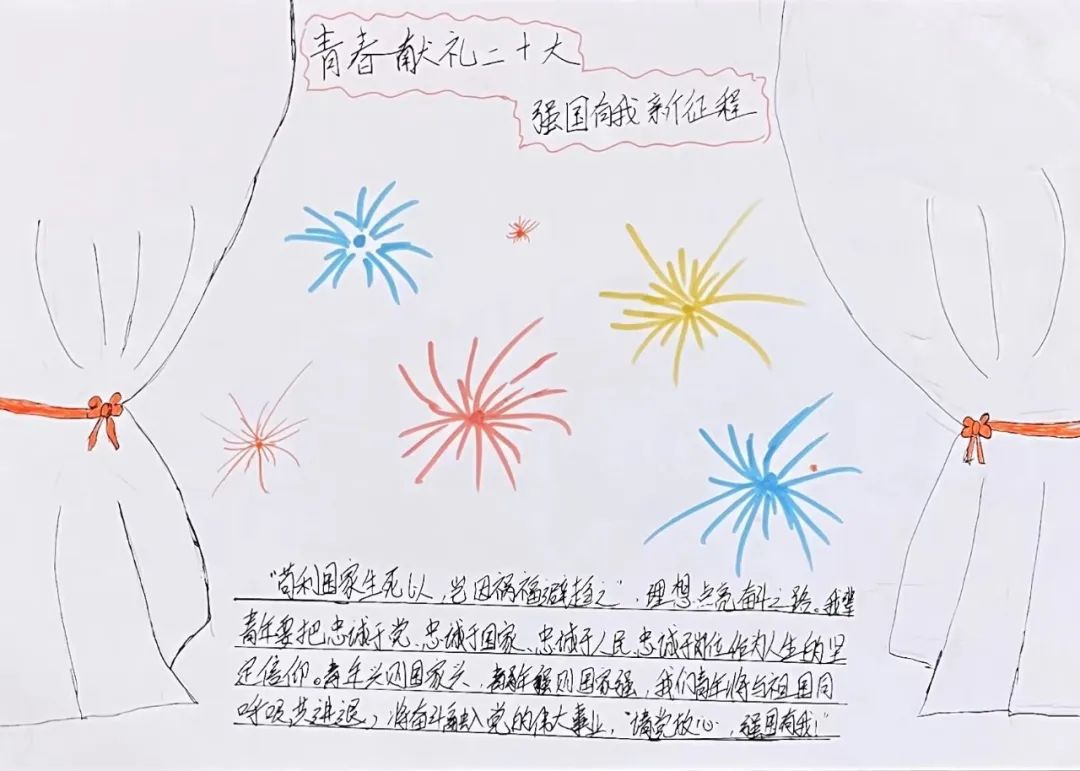 青春献礼二十大
强国有我新征程
“苟利国家生死以，岂因祸福避趋之”，理想点亮奋斗之路。我辈
青年要把忠诚于党、忠诚于国家、忠诚于人民、忠诚于岗位作为人生的坚
定信仰。青年兴则国家兴，青年强则国家强，我们青年将与祖国同
呼吸，共进退，将奋斗融入党的伟大事业，“请党放心，强国有我！”